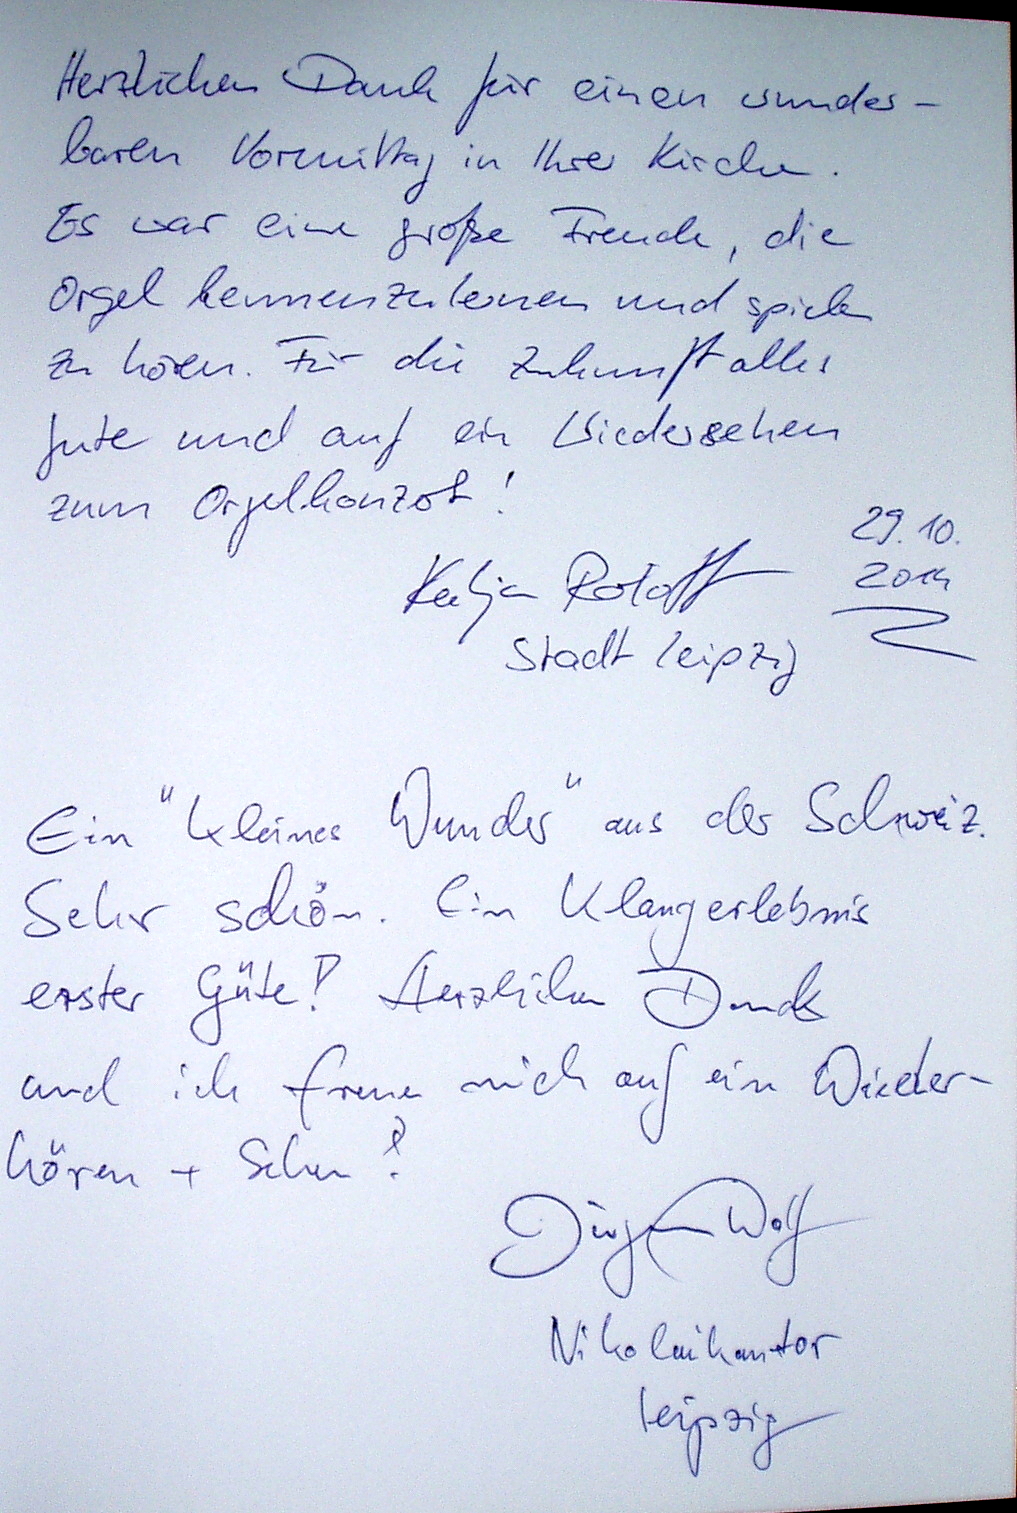 Herzlichen Dank für einen wunder-
baren Vormittag in Ihrer Kirche.
Es war eine große Freude, die
Orgel kennenzulernen und spielen
zu hören. Für die Zukunft alles
gute und auf ein Wiedersehen
zum Orgelkonzert!
29.10.
2014
Katja Roloff
Stadt Leipzig
Ein "kleines Wunder" aus der Schweiz.
Sehr schön. Ein Klangerlebnis
erster Güte! Herzlichen Dank
und ich freue mich auf ein Wieder-
hören + Sehen!
Jürgen Wolf
Nikolaikantor
Leipzig